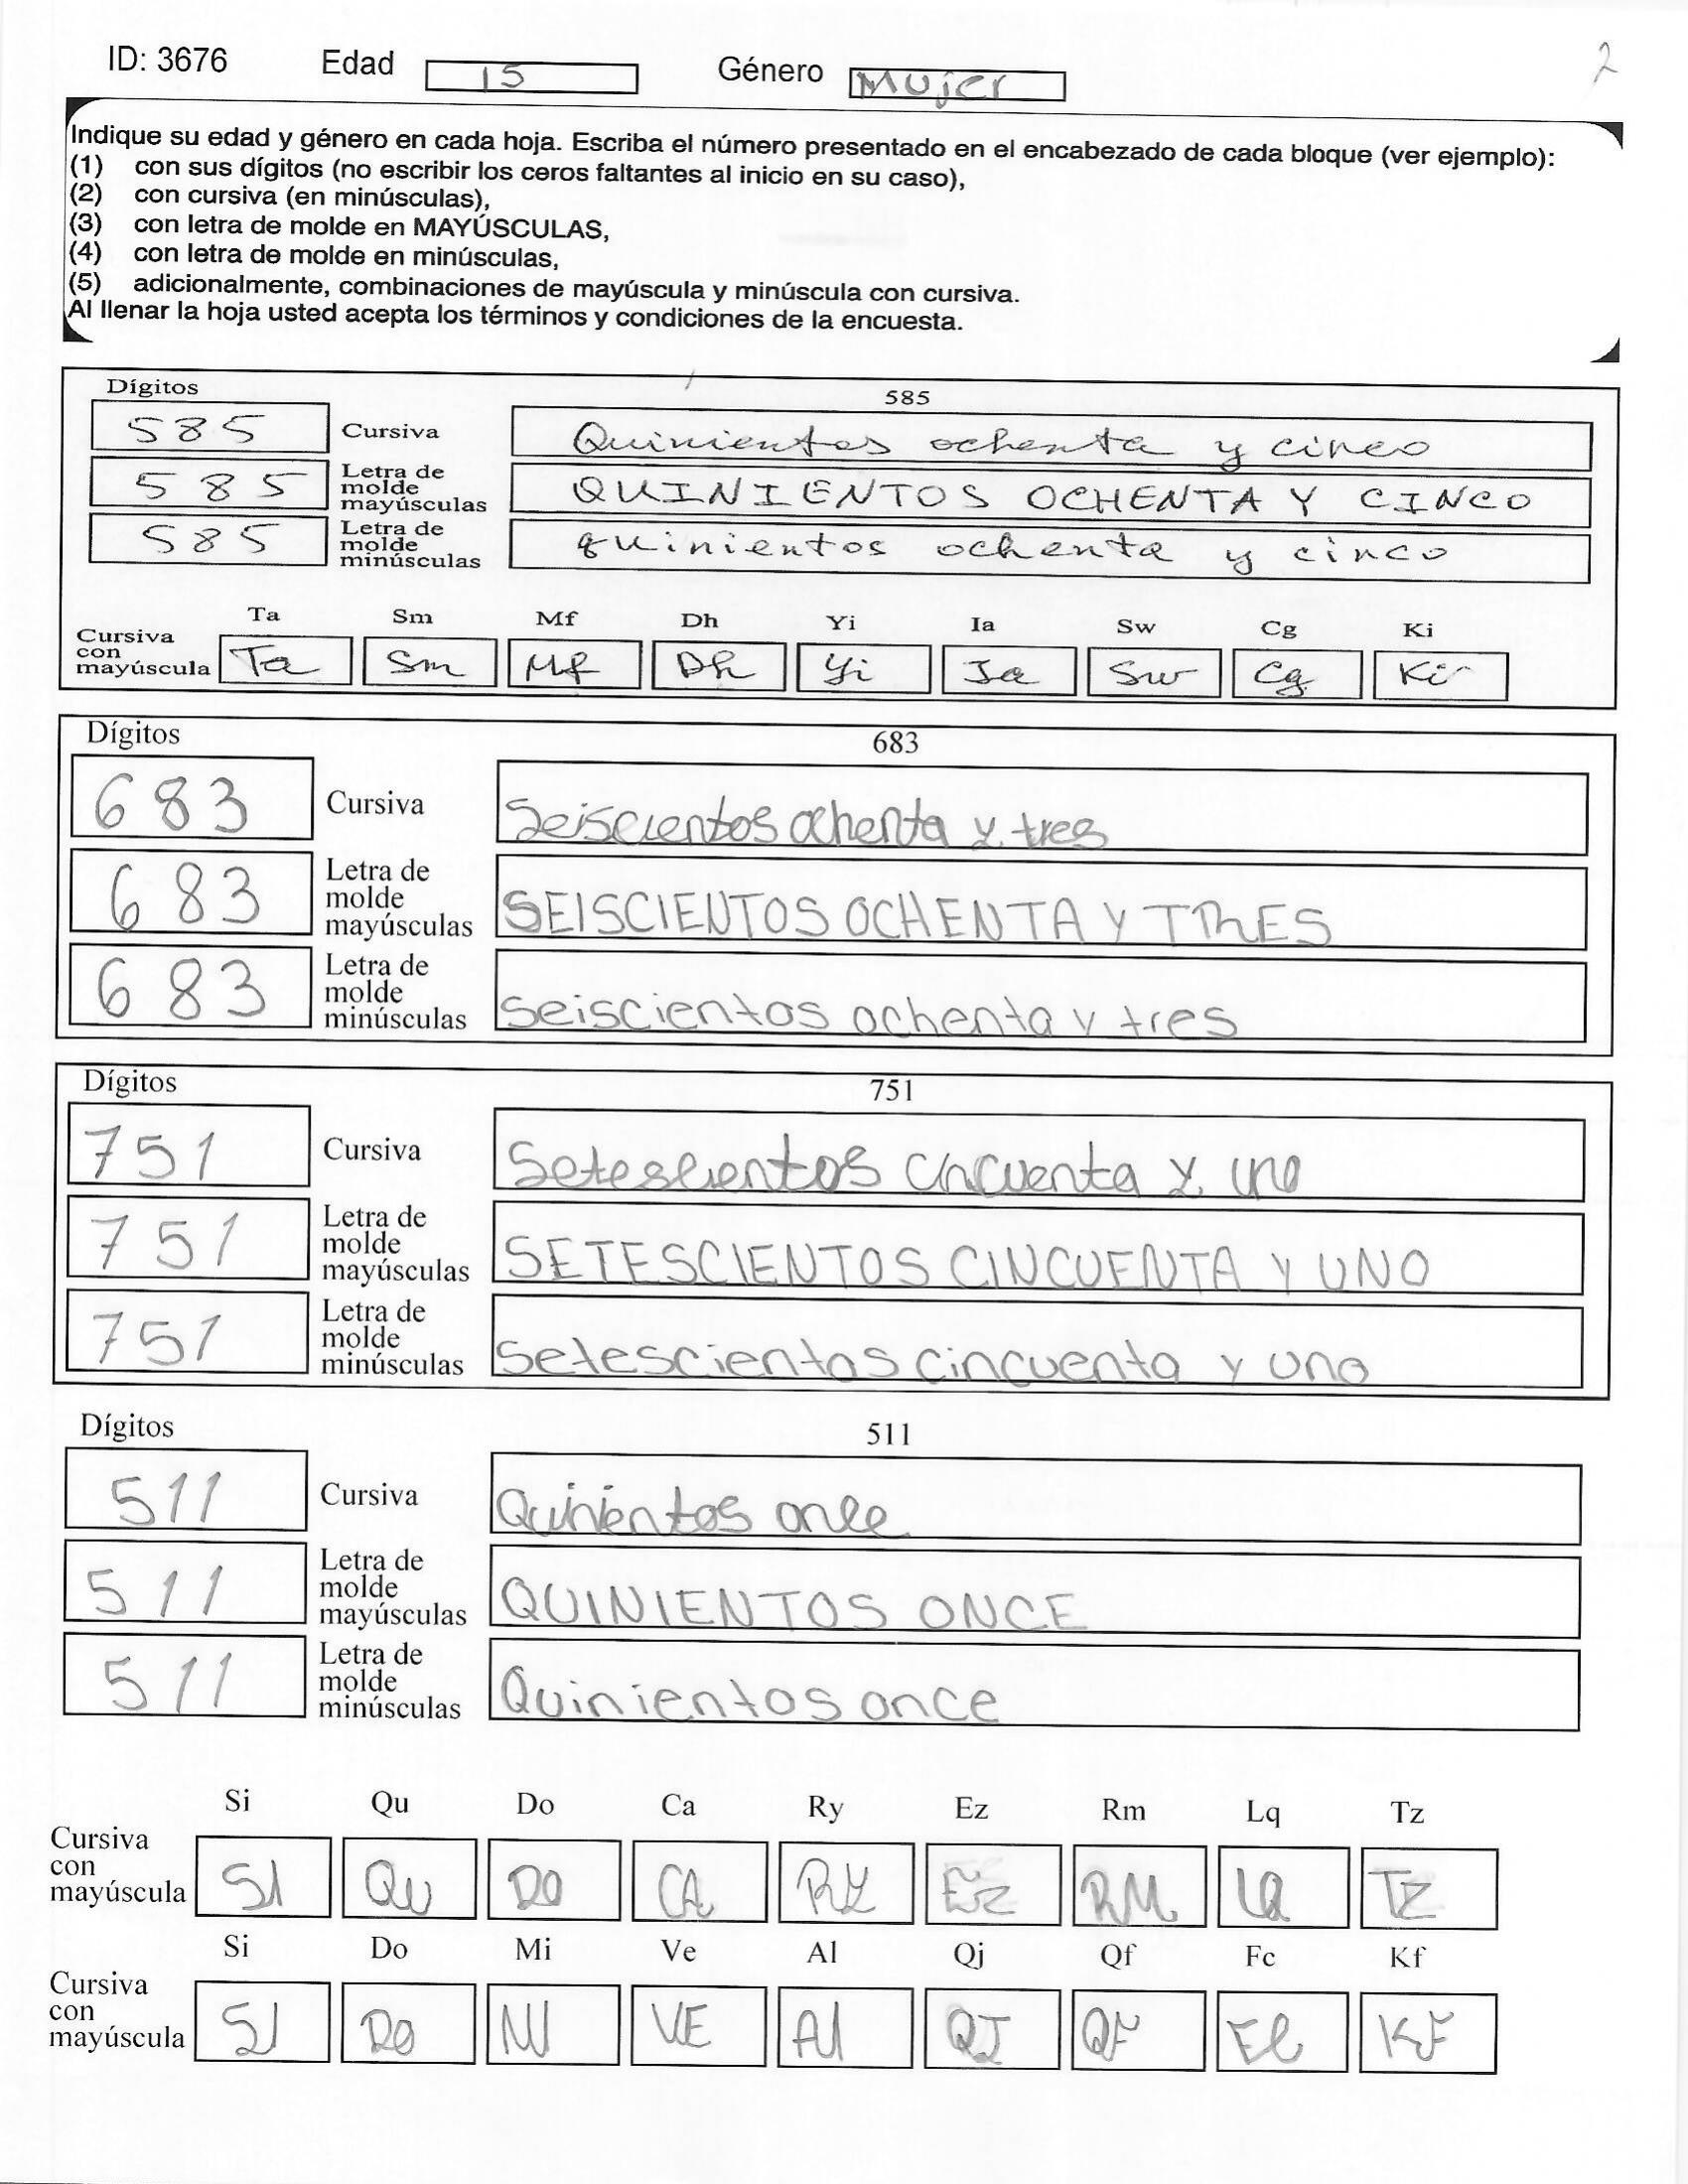 ID: 3676 Edad 15 Género Mujer 2
Indique su edad y género en cada hoja. Escriba el número presentado en el encabezado de cada bloque (ver ejemplo):
(1) con sus dígitos (no escribir los ceros faltantes al inicio en su caso),
(2) con cursiva (en minúsculas),
(3) con letra de molde en MAYÚSCULAS,
(4) con letra de molde en minúsculas,
(5) adicionalmente, combinaciones de mayúscula y minúscula con cursiva.
Al llenar la hoja usted acepta los términos y condiciones de la encuesta.
Dígitos 585
585 Cursiva Quinientos ochenta y cinco
585 Letra de molde mayúsculas QUINIENTOS OCHENTA Y CINCO
585 Letra de molde minúsculas quinientos ochenta y cinco
Ta Sm Mf Dh Yi Ia Sw Cg Ki
Cursiva con mayúscula Ta Sm Mf Dh Yi Ia Sw Cg Ki
Dígitos 683
683 Cursiva Seiscientos ochenta y tres
683 Letra de molde mayúsculas SEISCIENTOS OCHENTA Y TRES
683 Letra de molde minúsculas seiscientos ochenta y tres
Dígitos 751
751 Cursiva Setescientos cincuenta y uno
751 Letra de molde mayúsculas SETESCIENTOS CINCUENTA Y UNO
751 Letra de molde minúsculas setescientos cincuenta y uno
Dígitos 511
511 Cursiva Quinientos once
511 Letra de molde mayúsculas QUINIENTOS ONCE
511 Letra de molde minúsculas Quinientos once
Si Qu Do Ca Ry Ez Rm Lq Tz
Cursiva con mayúscula SI QU DO CA RY EZ RM LQ TZ
Si Do Mi Ve Al Qj Qf Fc Kf
Cursiva con mayúscula SI DO MI VE Al QJ QF KF